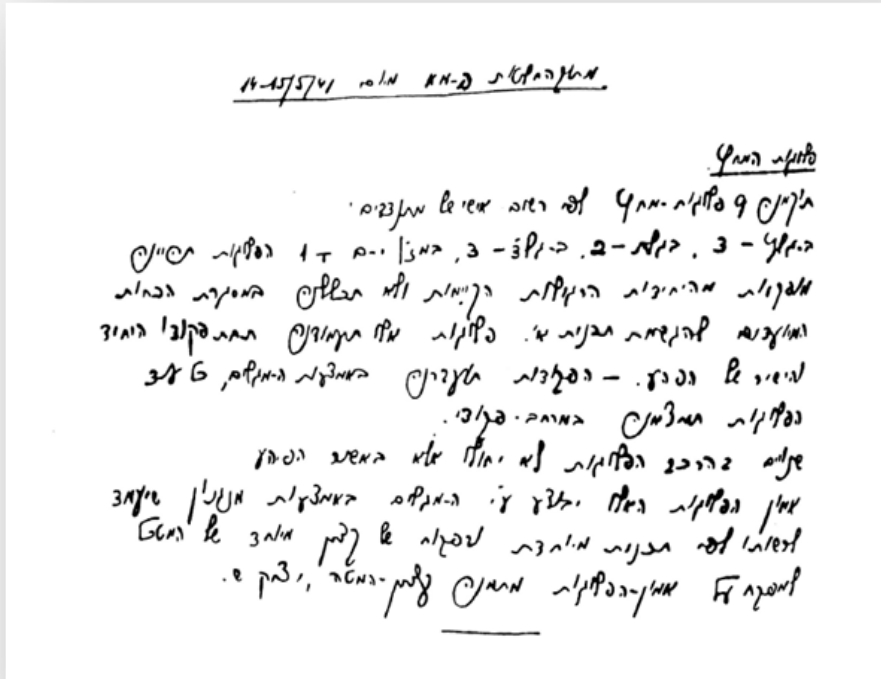 מתוך החלטות מיום 14-15/5/41
פלוגות המחץ
תוקמנה 9 פלוגות-מחץ לפי רשום אישי של מתנדבים
3, 2, 3, 1 הפלוגות תהיינה
מופקעות מהיחידות הרגילות הקיימות ולא תכללנה במסגרת הכחות
המיועדים להגשמת תכנית א'. פלוגות אלו תעמודנה תחת פקודו היחיד
והישיר של – הפקודות תועברנה באמצעות המגלים,
הפלוגות תמצאנה במרחב-פקודי.
שנויים בהרכב הפלוגות לא יחולו אלא באשור
אמון הפלוגות האלו יבוצע ע"י באמצעות מנגנון שיעמד
לרשותו לפי תכנית מיוחדת ובפקוח של קצין מיוחד של המטה
למפקח על אמון-הפלוגות מתמנה קצין-המטה, יצחק ש.